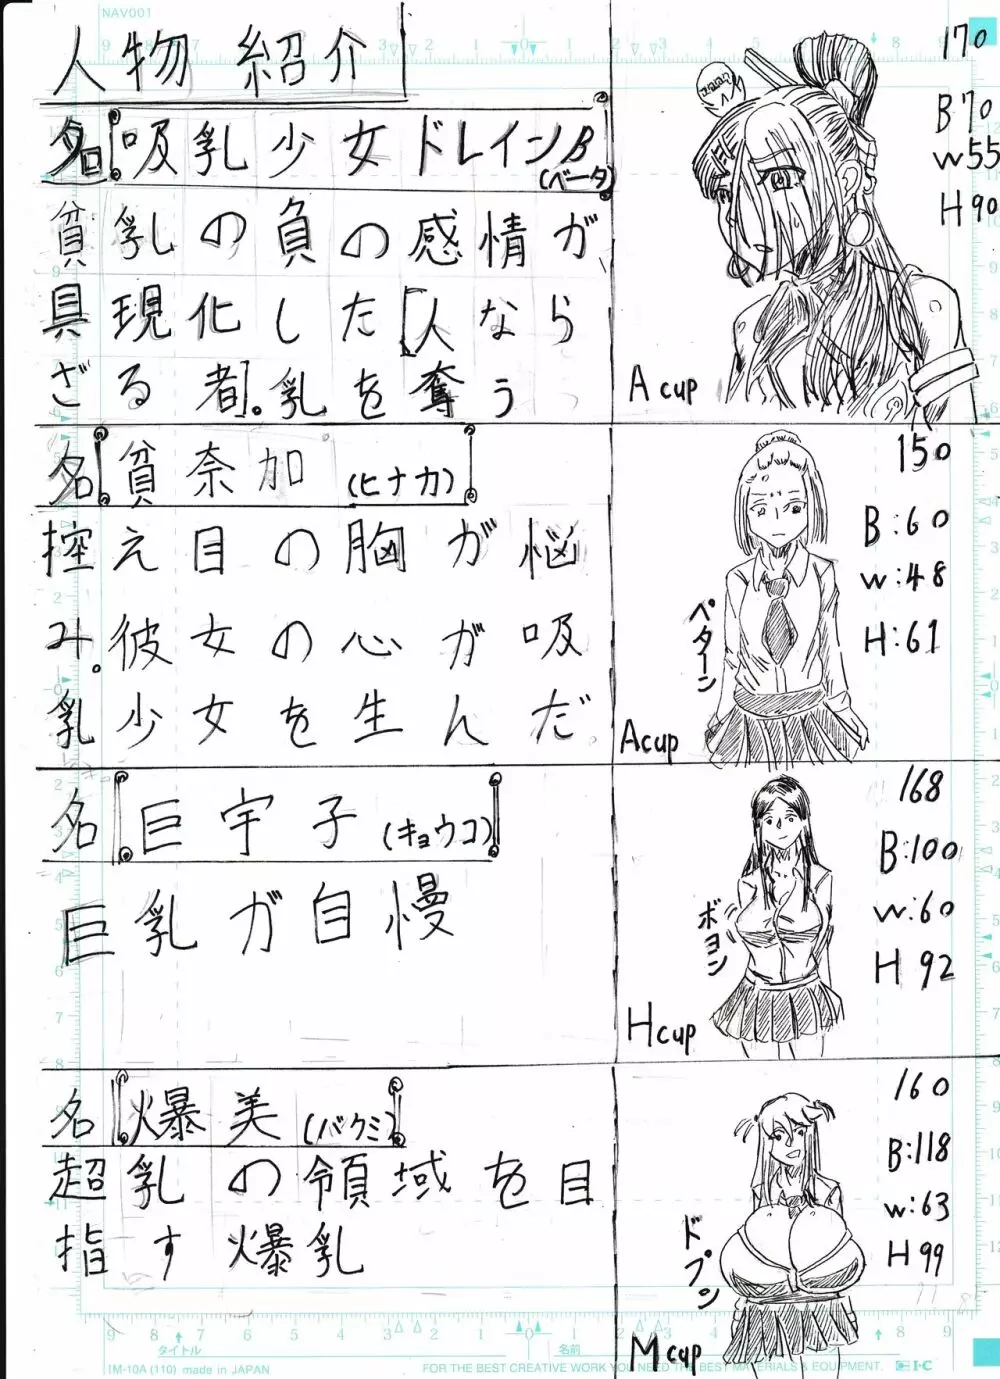 NAV001
人物紹介
名 吸乳少女ドレインβ
(ベータ)
貧乳の負の感情が
具現化した「人なら
ざる者」。乳を奪う
170
B70
W55
H90
A cup
名 貧奈加(ヒナカ)
控え目の胸が悩
み。彼女の心が吸
乳少女を生んだ
150
B:60
W:48
H:61
ペターン
A cup
名 巨宇子(キョウコ)
巨乳が自慢
168
B:100
W:60
H92
ボヨン
H cup
名 爆美(バクミ)
超乳の領域を目
指す爆乳
160
B:118
W:63
H99
ドプン
M cup
タイトル
名前
IM-10A (110) made in JAPAN
FOR THE BEST CREATIVE WORK YOU NEED THE BEST MATERIALS & EQUIPMENT.
I·C